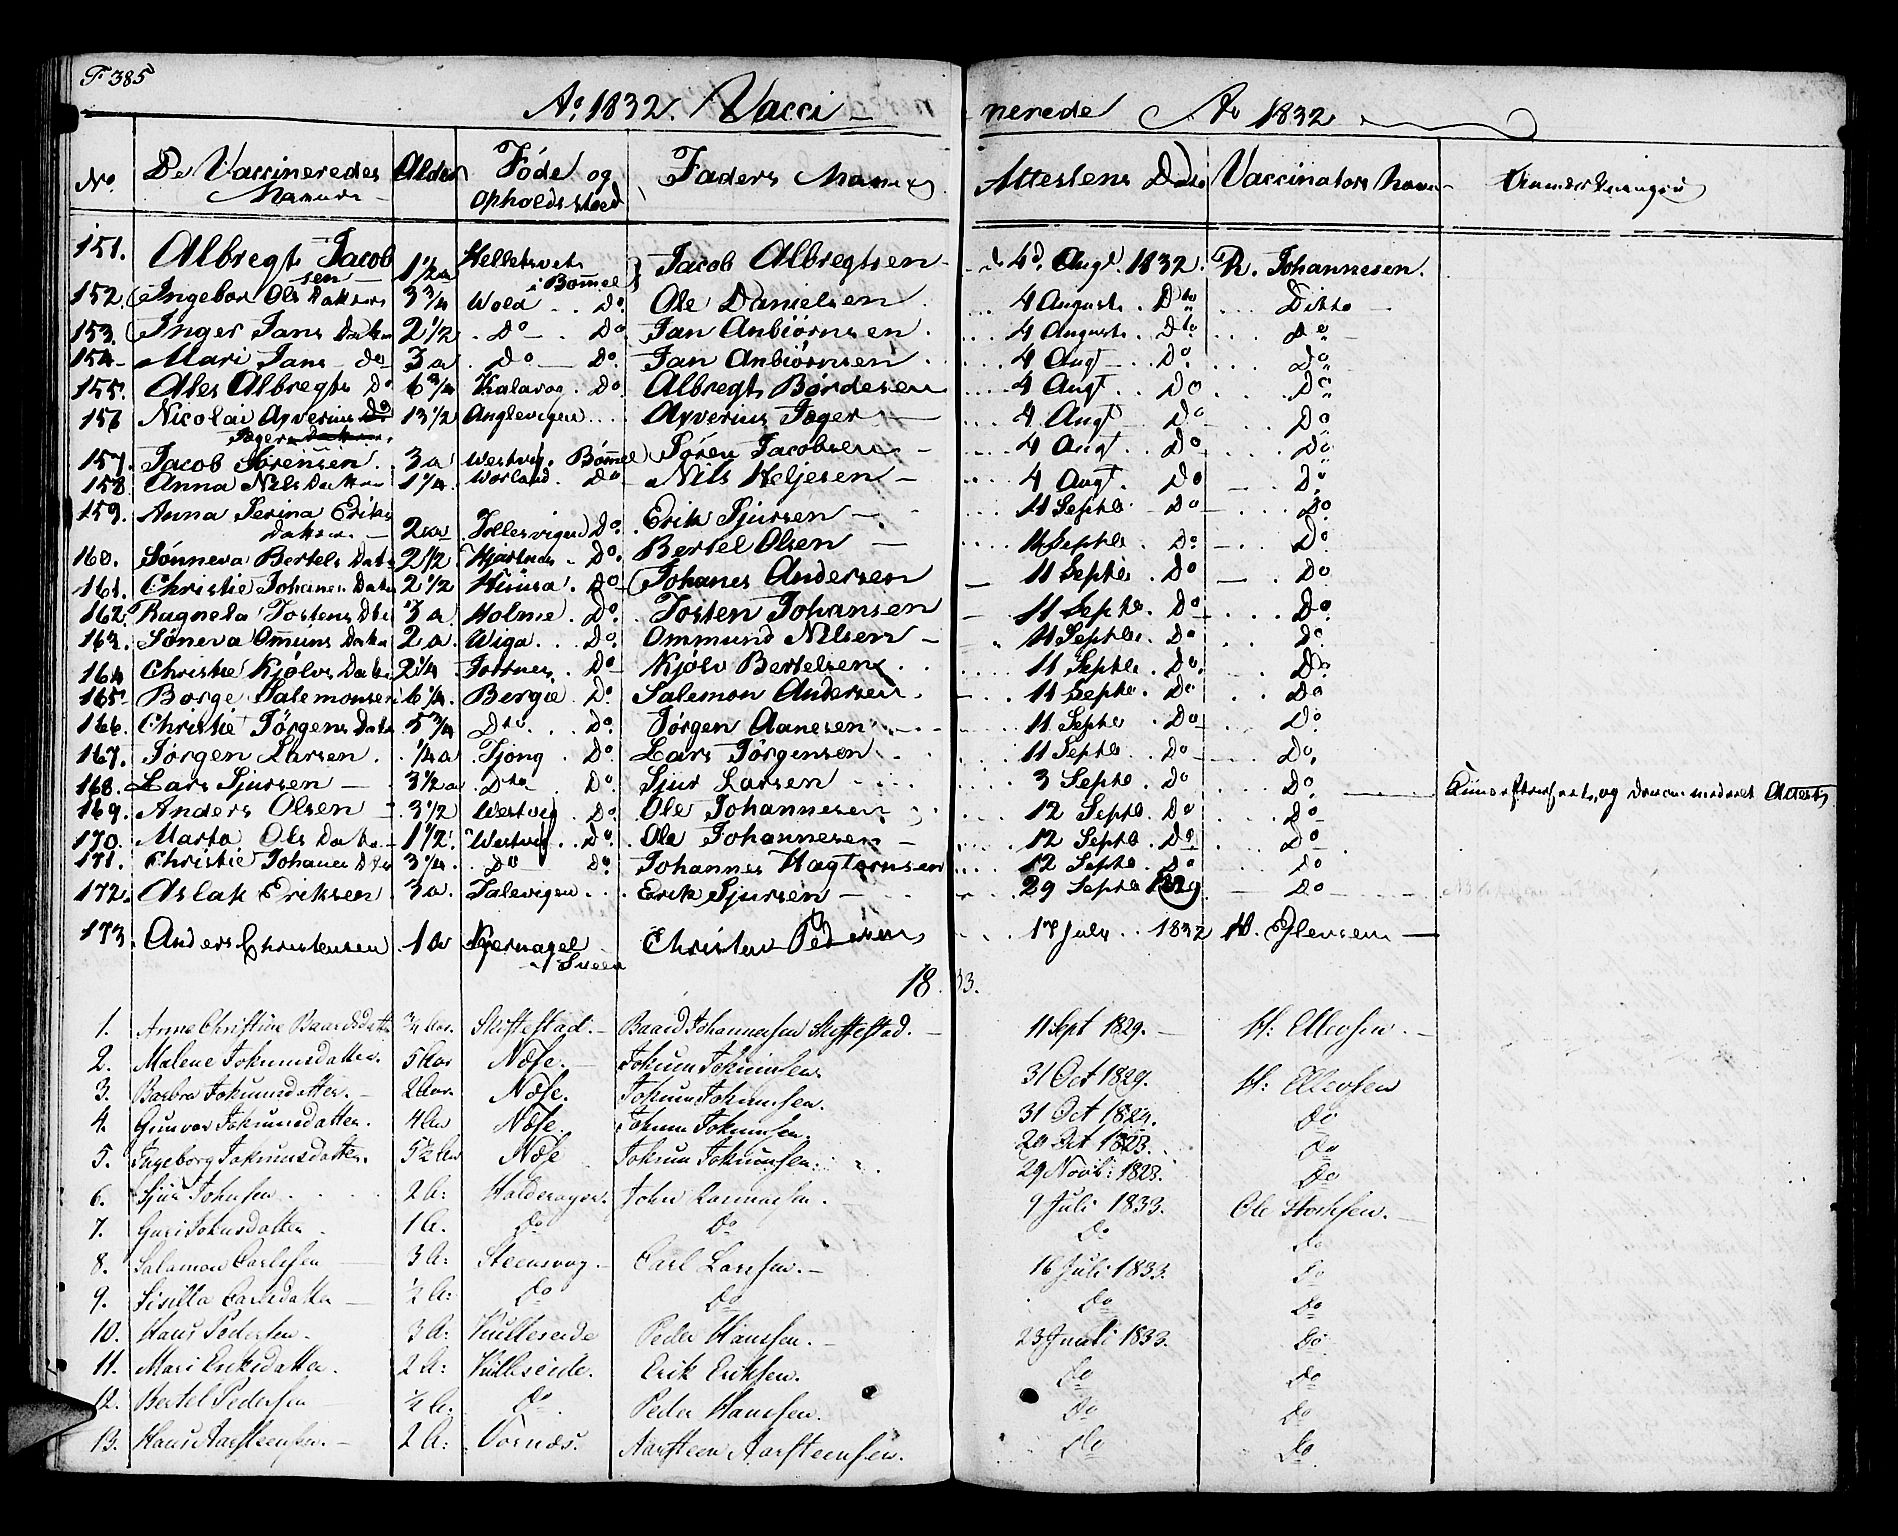 F 385
Ao. 1832. Vacci- nerede Ao 1832
No. De Vaccineredes Alder Føde og Faders Navn Attestens Dato Vaccinators Navn Anmerkninger
Navne Opholdssted
151. Albregt Jacob 1½ a Helletvet Jacob Albregtsen 4d. Augt. 1832. R. Johannesen.
sen i Bømmel
152. Ingebor Ols Datter 3¾ Wold Do. Ole Danielsen. 4 Augusti. Dto Ditto
153. Inger Jans Datter 2½ Do Do Jan Anbiørnsen. 4 Augusti. Dto Do
154. Mari Jans do 3 a Do Do. Jan Anbiørnsen 4 Augt Do. Do
155. Ales Albregts Do 6¾ Kalavog. Do. Albregt Børdesen 4 Augt. Do Do
157 Nicolai Ayverius 13½ Anglevigen Ayverius Jæger 4 Augt Do Do
Jæger
157. Jacob Sørensen. 3 a Westvig. Bømmel Søren Jacobsen 4 Augt. Do Do
158. Anna Nils Datter 1¼ Worland. Do Nils Heljesen 4 Augt. Do Do.
159. Anna Serina Eriks 11 Septbr Do Do
Datter. 2 a Follesvigen Do. Erik Sjursen
160. Sønneva Bertels Datt 2½ Do. Bertel Olsen 11 Septbr. Do. Do
161. Christie Johanes Datter 2½ Do Johanes Andersen 11 Septbr. Do Do
162. Ragnela Tostens Dtr 3 a. Holme. Do. Tosten Johansen 11 Septbr. Do Do.
163. Søneva Omuns Datter 2 a. Wiga. Do. Ommund Nilsen 11 Septbr. Do. Do.
164 Christie Kjølvs Datter 2¼ Tornes. Do Kjølv Bertelsen. 11 Septbr. Do. Do.
165. Børge Salemonsen 6¼. Bergie. Do. Salemon Andersen. 11 Septbr. Do Do
166. Christie Jørgens Datter 5¾ Dto. Do. Jørgen Aanesen 11 Septbr. Do Do
167. Jørgen Larsen. ¼ a Tjong Do. Lars Jørgensen 11 Septbr. Do Do.
168. Lars Sjursen 3½ a Dto Do. Sjur Larsen 3 Septbr. Do Do. og Attest
169. Anders Olsen 3½ Westvig Do. Ole Johannesen 12 Septbr. Do Do
170. Marta Ols Datter 1½. Westvig. Do. Ole Johannesen 12 Septbr. Do Do
171. Christie Johanes Dtter 3¼. Do Do. Johannes Hagtornsen 12 Septbr. Do Do
172. Aslak Eriksen 3 a. Salevigen Erik Sjursen 29 Septbr 1829 Do
173. Anders Christensen 1 a Christen Pedersen 17 July 1832
Sveen
1833.
1. Anne Christine Baardsdatter ¾ Aar. Skiftestad. Baard Johannesen Skiftestad. 11 Sept 1829. H: Ellevsen.
2. Malene Jokumsdatter. 5 Aar Næse. Jokum Jokumsen. 31 Oct 1829. H: Ellevsen
3. Barbra Jokumsdatter. 2 Aar. Næse. Jokum Jokumsen. 31 Oct 1829. Do
4. Gunvor Jokumsdatter. 4 Aar Næse. Jokum Jokumsen. 20 Oct 1823. Do
5. Ingeborg Jokumsdatter. 5½ Aar Næse Jokum Jokumsen. 29 Novb: 1828. Do
6. Sjur Johnsen. 2 A. John 9 Juli 1833. Ole
7. Guri Johnsdatter 1 A. Do Do Do Do
8. Salamon Carlsen 3 A: Steensvog. Carl Larsen. 16 Juli 1833. Do
9. Sisilla Carlsdatter ½ A: Do Do Do Do
10. Hans Pedersen. 3 A: Kulleseide Peder Hansen. 23 Juuli 1833. Do
11. Mari Eriksdatter. 2 A: Kulleseide. Erik Eriksen. Do Do
12. Bertel Pedersen ½ A. Do. Peder Hansen. Do Do
13. Hans Aarsteensen. 2 A: Vornæs. Aarsteen Aarsteensen. Do Do